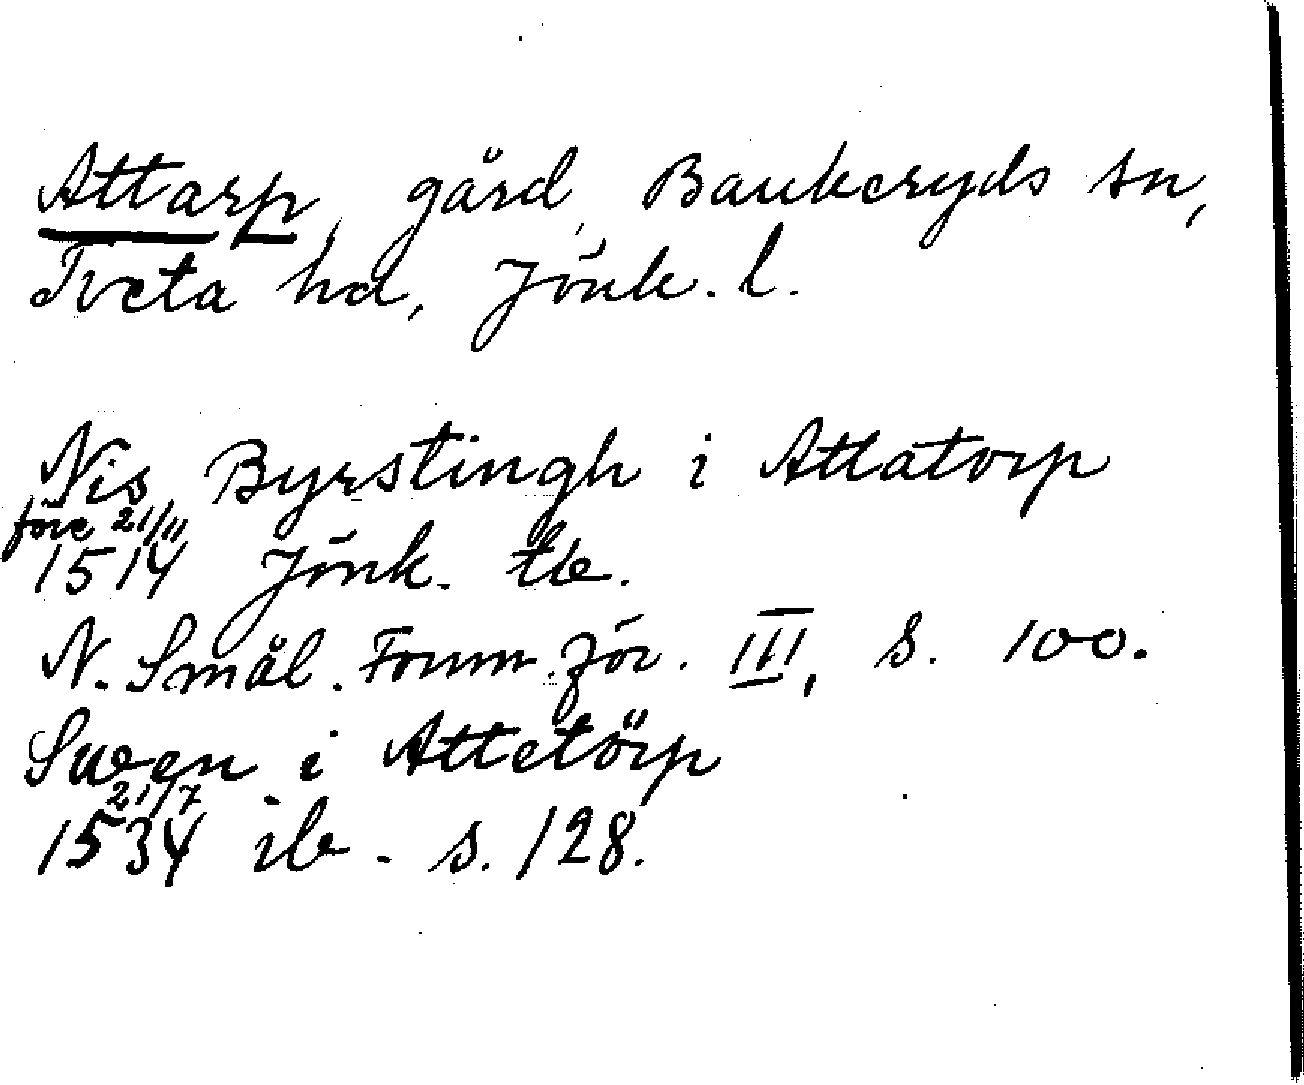 Attarp, gård, Bankeryds sn,
Tveta hd, Jönk. l.
Nis Byrstingh i Attatorp
före 21/11
1514 Jönk. tb.
N. Smål. Fornm. för. III, s. 100.
Swen i Attetörp
21/7
1534 ib. s. 128.